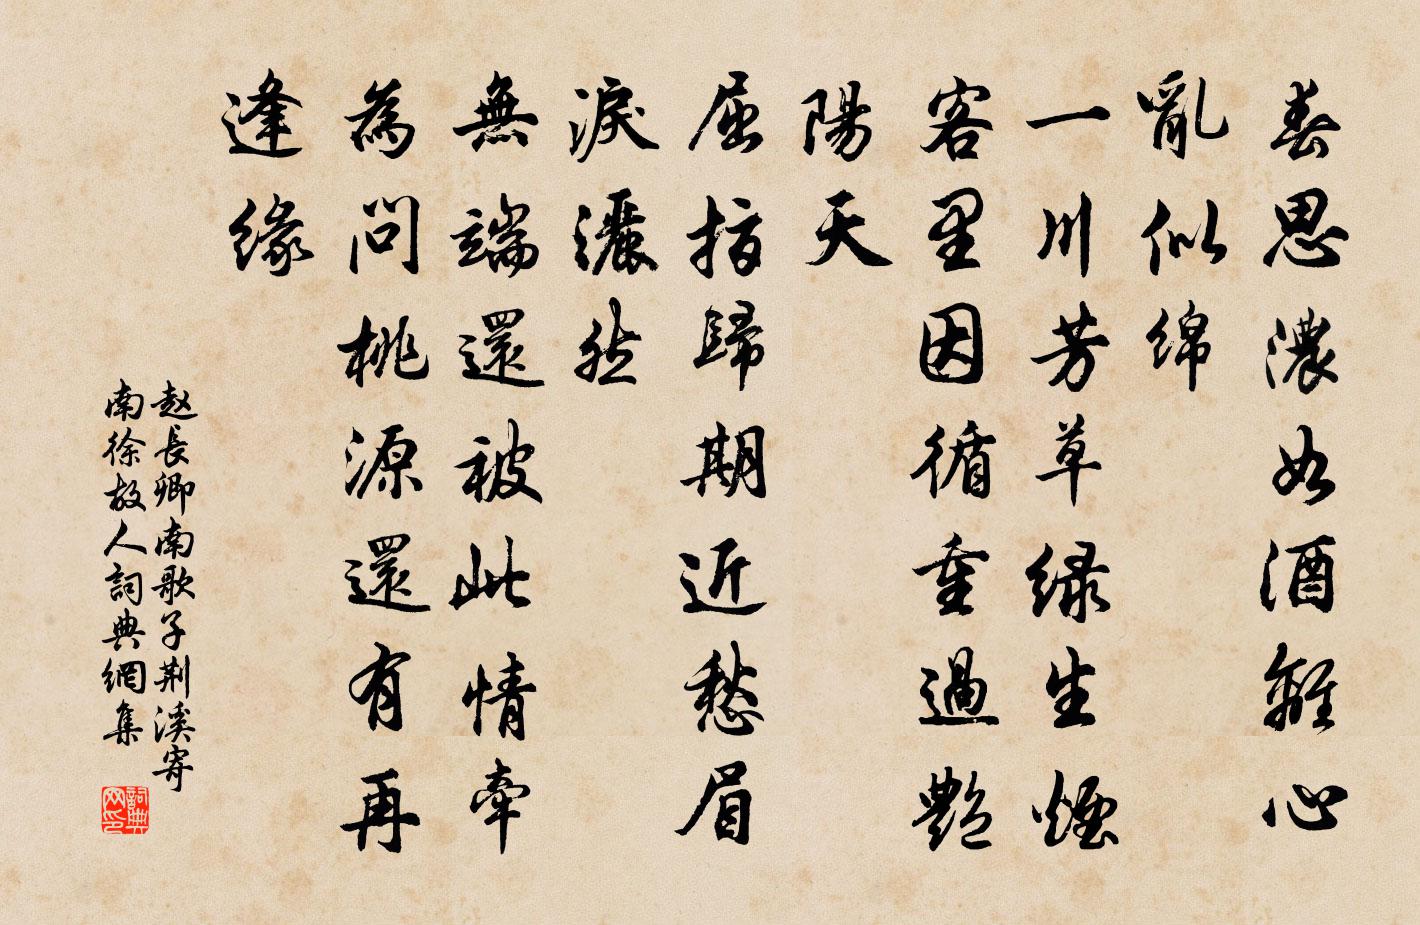 春思濃如酒離心
亂似绵
一川芳草绿生煙
客里因循重過艷
陽天
屈指歸期近愁眉
淚灑然
無端還被此情牽
為問桃源還有再
逢緣
赵長卿南歌子荆溪寄
南徐故人詞典網集
詞典
网印